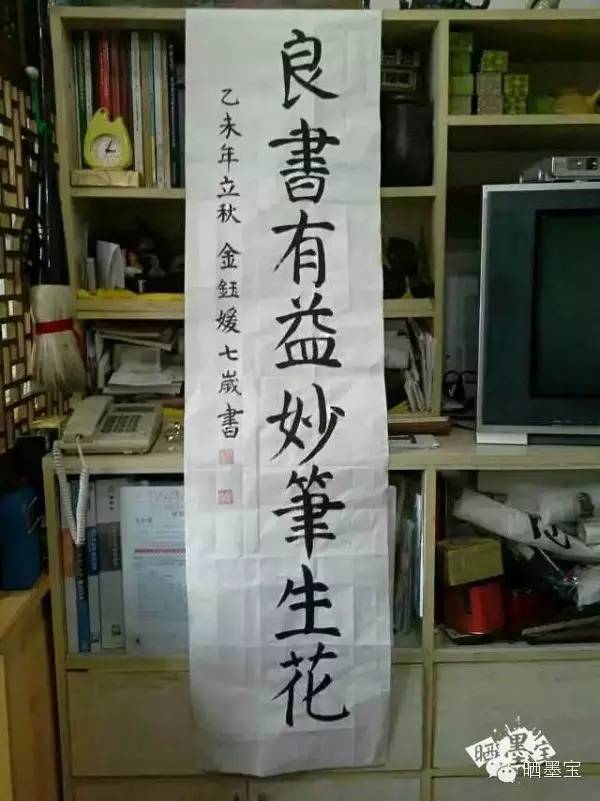 良書有益妙筆生花
乙未年立秋 金鈺媛七歲書
晒墨宝
晒墨宝